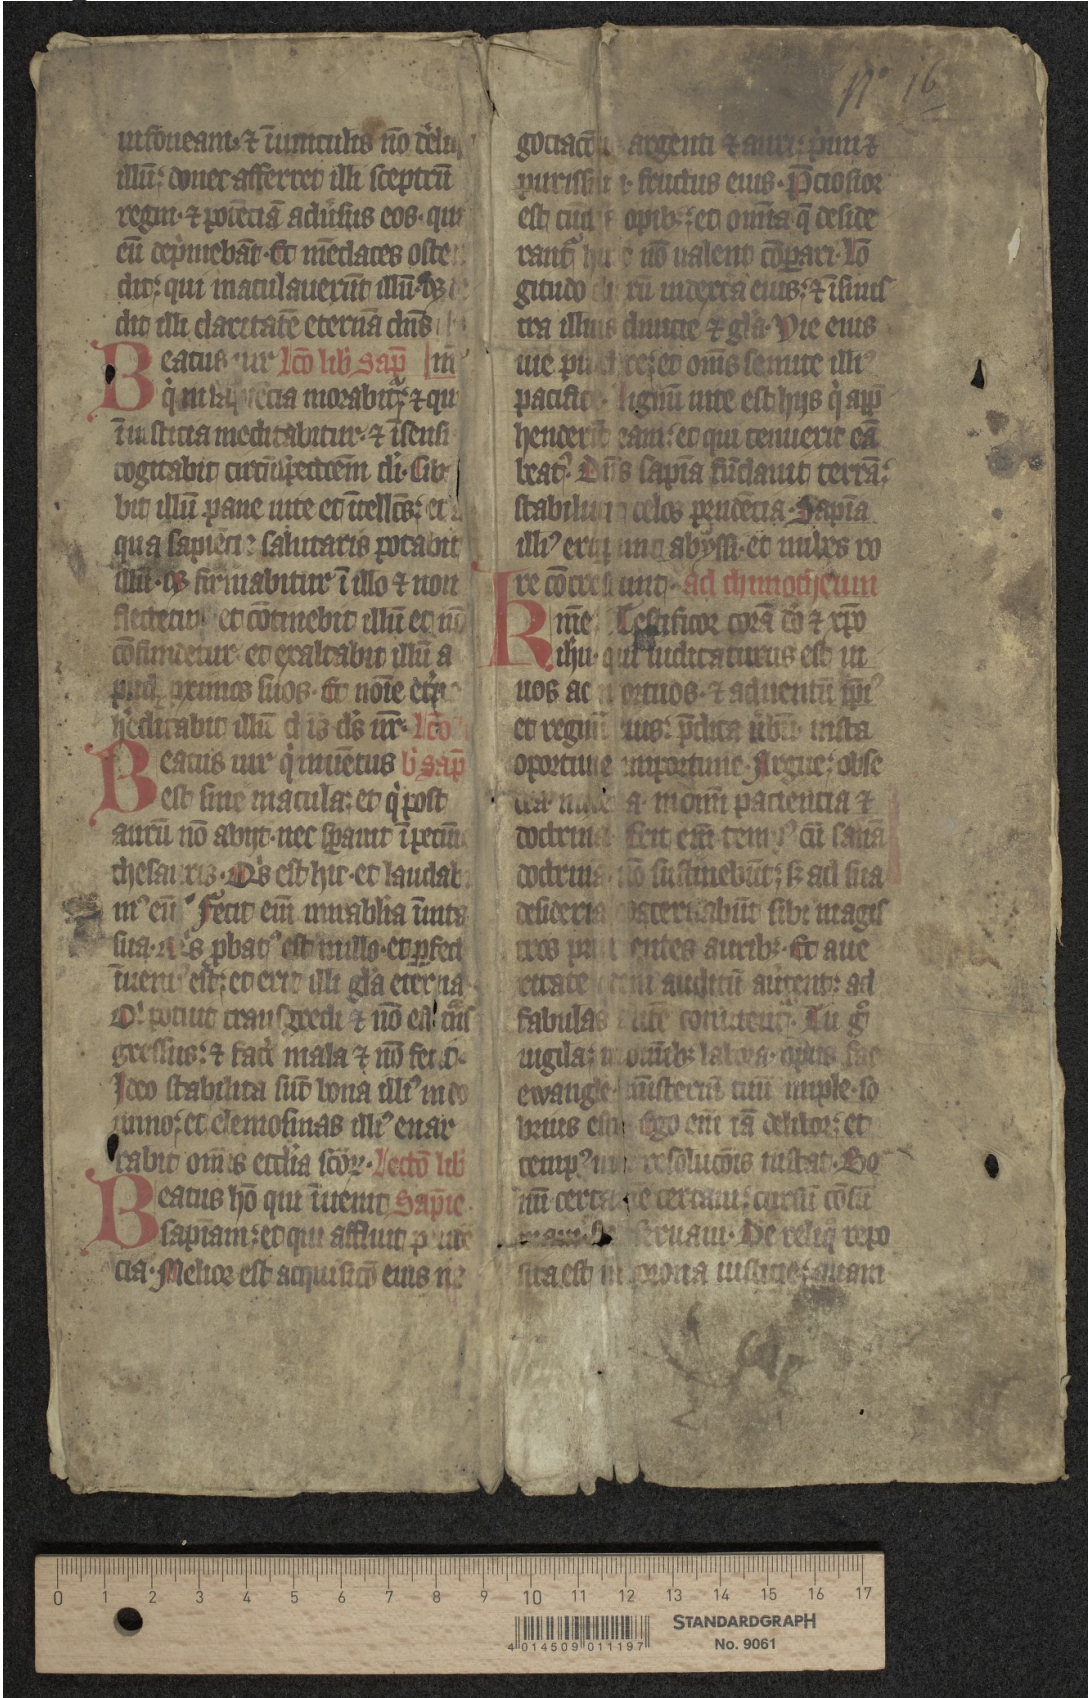 Nº 16
in foueam · ⁊ ī uinculis nō
illū: donec afferret illi sceptrū
regni · ⁊ potēciā adūsus eos · qui
eū dep̄mebāt · Et mēdaces oste
dit: qui maculauerūt illū ·
dit illi claritatē eternā dn̄s
Beatus uir Lc̄o lib sap̄
q̇ in sapiēcia morabit᷑ ⁊ qui
ī iusticia meditabitur · ⁊ ī sensu
cogitabit circūspectiōem di · Ciba
bit illū pane uite et ītellc̄s: et
qua sapiēcie salutaris potabit
illū · firmabitur ī illo ⁊ non
flectetur et cōtinebit illū et nō
cōfundetur · et exaltabit illū a
pud proximos suos · Et noīe et̄no
hēditabit illū dn̄s ds̄ nr̄ · Lc̄o
Beatus uir q̇ inuētus lib sap̄
est sine macula: et q̇ post
aurū nō abijt · nec sp̄auit ī pecūie
thesauris · Qis est hic · et laudabi
mꝰ eū Fecit em̄ mirabilia ī uita
sua · Qis ꝓbatꝰ est in illo · et ꝑfectꝰ
īuentꝰ est: et erit illi gl̄a eterna ·
Qi potuit transgredi ⁊ nō est trās
gressus: ⁊ facē mala ⁊ nō fecit ·
Ideo stabilita sūt bona illiꝰ in do
mino: et elemosinas illiꝰ enar
rabit om̄is ecclīa scōꝝ · Lectō lib
Beatus hō qui īuenit Sapīe
sapīam: et qui affluit prudē
cia · Melior est acquisicō eius ne
gociacōe argenti ⁊ auri: pimi ⁊
purissimi fructus eius · P̄ciosior
est cūctis opibꝫ: et omīa q̄ deside
rant᷑ huic nō ualent cōpari · Lō
gitudo dierū in dextʳa eius: ⁊ ī sinis
tra illius diuicie ⁊ gl̄a · Vie eius
uie pulchre: et om̄s semite illiꝰ
pacifice · Lignū uite est hijs q̇ app̄
henderīt eam: et qui tenuerit eā
beatꝰ · Dn̄s sapīa fūdauit terrā:
stabiliuit celos prudēcia · Sapīa
illiꝰ eruperunt abyssi · et nubes ro
re cōcrescunt · ad thimotheum
Kr̄me Testificor corā deo ⁊ xp̄o
ihu · qui iudicaturus est ui
uos ac mortuos · ⁊ aduentū ip̄iꝰ
et regnū eius: p̄dica ūbū · insta
oportune importune · Argue: obse
cra · increpa in omī paciencia ⁊
doctrina Erit em̄ tempꝰ cū sanā
doctrinā nō sustinebūt: sꝫ ad sua
desideria coaceruabūt sibi magis
tros prurientes auribꝫ · Et a ue
ritate quidem auditū auertent: ad
fabulas autē conuertent᷑ · Tu ġ
uigila: in omībꝫ labora · opus fac
ewangeliste · mīsteriū tuū imple · so
brius esto · Ego em̄ iā delibor: et
tempꝰ mee resolucōis instat · Bo
nū certamē certaui: cursū cōsū
maui · fidē seruaui · De reliq̇ repo
sita est m̄ corona iusticie: quam